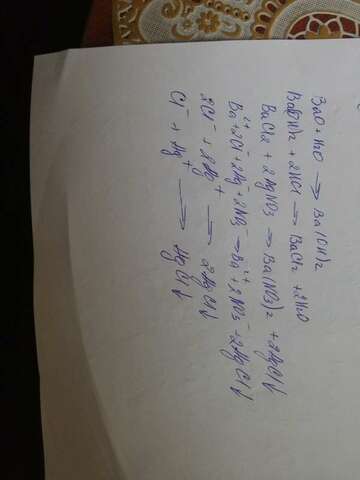 BaO + H2O → Ba(OH)2
Ba(OH)2 + 2HCl → BaCl2 + 2H2O
BaCl2 + 2AgNO3 → Ba(NO3)2 + 2AgCl↓
Ba²⁺ + 2Cl⁻ + 2Ag⁺ + 2NO3⁻ → Ba²⁺ + 2NO3⁻ + 2AgCl↓
2Cl⁻ + 2Ag⁺ → 2AgCl↓
Cl⁻ + Ag⁺ → AgCl↓